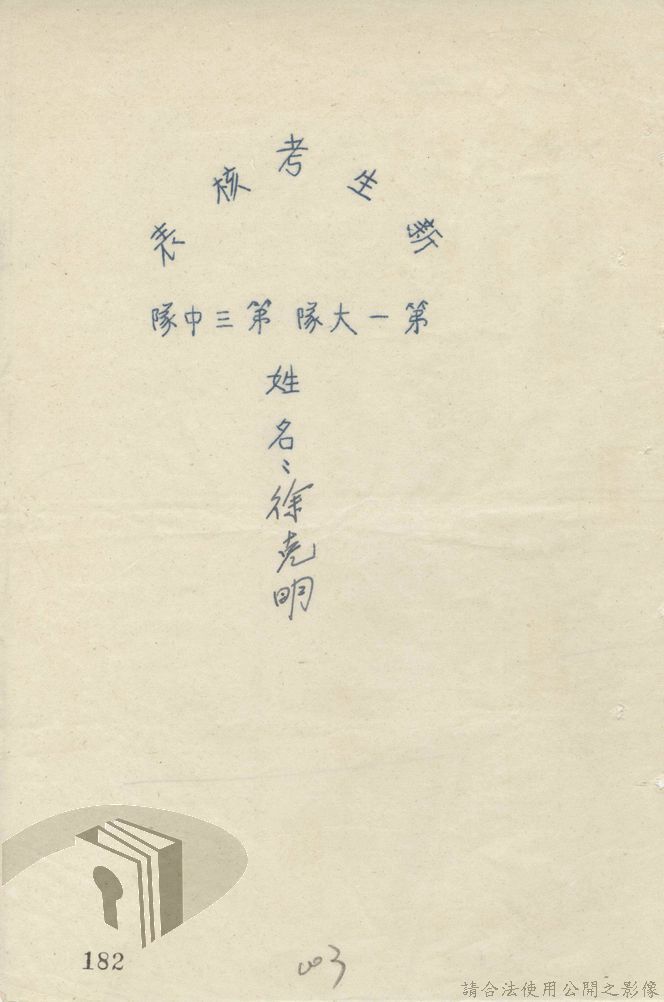 新生考核表
第一大隊 第三中隊
姓名：徐克明
182
003
請合法使用公開之影像